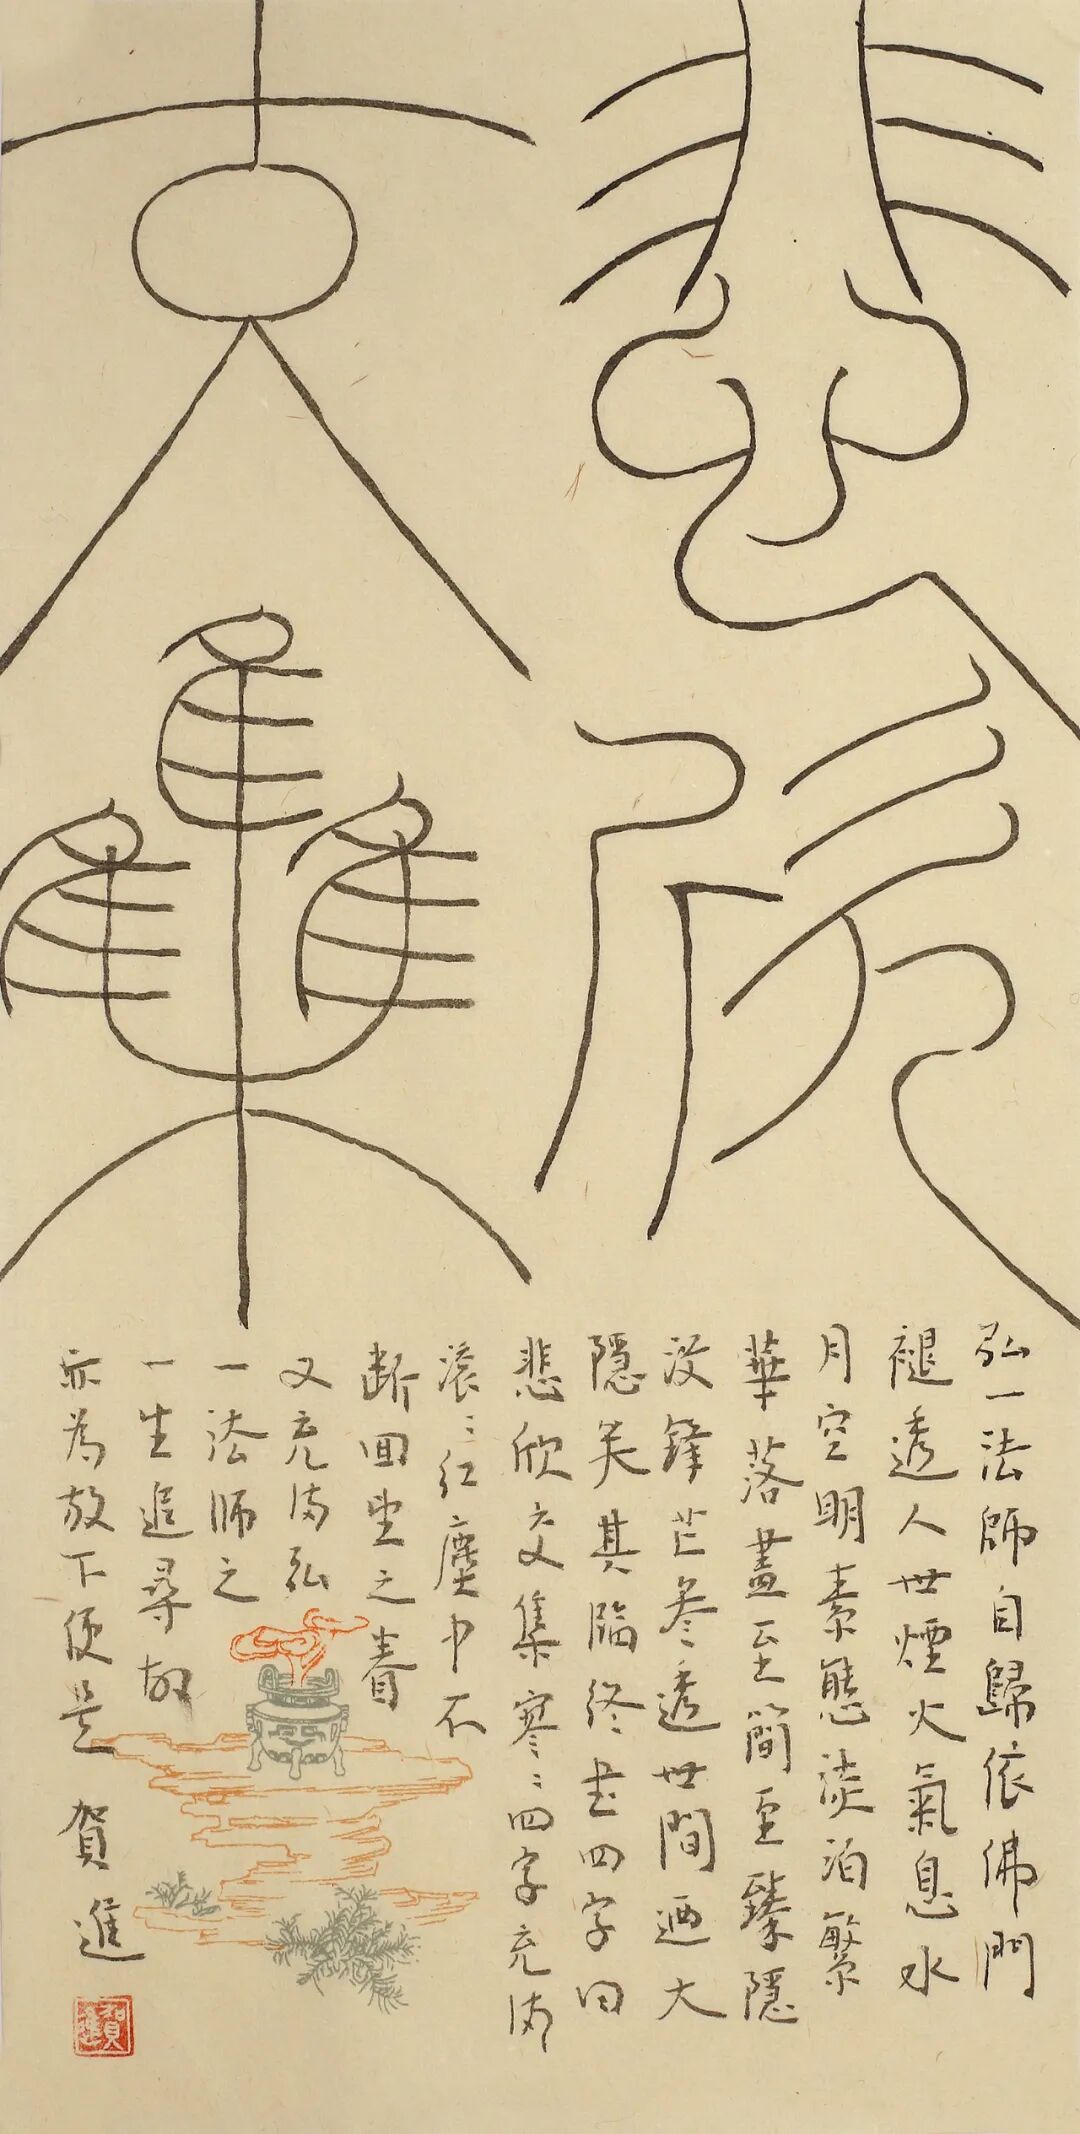 悲欣
交集
弘一法師自歸依佛門
褪透人世煙火氣息水
月空明素態淡泊繁
華落盡至簡至臻隱
沒鋒芒参透世間迺大
隱矣其臨終书四字曰
悲欣交集寥寥四字充满
滚滚红塵中不
断回望之眷
又充满弘
一法師之
一生追尋故
亦為放下便是
賀進
賀進